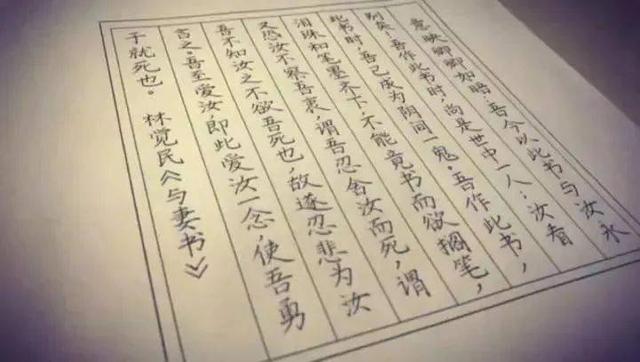 意映卿卿如晤:吾今以此书与汝永
别矣!吾作此书时,尚是世中一人;汝看
此书时,吾已成为阴间一鬼。吾作此书,
泪珠和笔墨齐下,不能竟书而欲搁笔,
又恐汝不察吾衷,谓吾忍舍汝而死,谓
吾不知汝之不欲吾死也,故遂忍悲为汝
言之。吾至爱汝,即此爱汝一念,使吾勇
于就死也。 林觉民《与妻书》